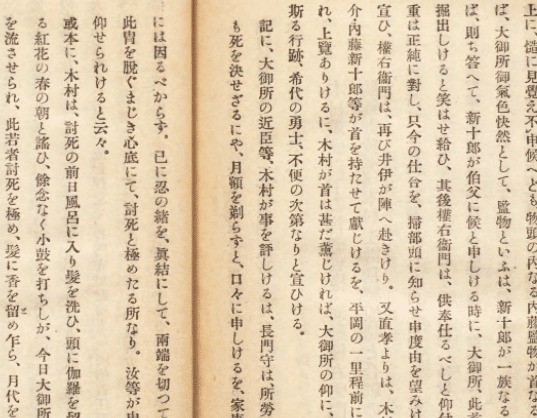 上に、慥に見覺え不申候へども、物頭の内なる内藤監物が首なる
ば、大御所御氣色快然として、監物といふは、新十郎が一族なる
ば、則ち答へて、新十郎が伯父に候と申しける時に、大御所、此首
掘出しけると笑はせ給ひ、其後權右衞門は、供奉仕るべしと仰
重は正純に對し、只今の仕合を、掃部頭に知らせ申度由を望みけ
宣ひ、權右衞門は、再び井伊が陣へ赴きけり。又直孝よりは、木
介内藤新十郎等が首を持たせて獻じけるを、平岡の一里程前に
れ、上覽ありけるに、木村が首は甚だ薫じければ、大御所の仰に、
斯る行跡、希代の勇士、不便の次第なりと宣ひける。
記に、大御所の近臣等、木村が事を評しけるは、長門守は、所勞
も死を決せざるにや、月額を剃らずと、口々に申しけるを、家
には因るべからず。已に忍の緒を、眞結にして、兩端を切つて
此冑を脱ぐまじき心底にて、討死と極めたる所なり。汝等が
仰せられけると云々。
或本に、木村は、討死の前日風呂に入り髮を洗ひ、頭に伽羅を留
る紅花の春の朝と謠ひ、餘念なく小鼓を打ちしが、今日大御所
を流させられ、此若者討死を極め、髮に香を留め乍ら、月代を